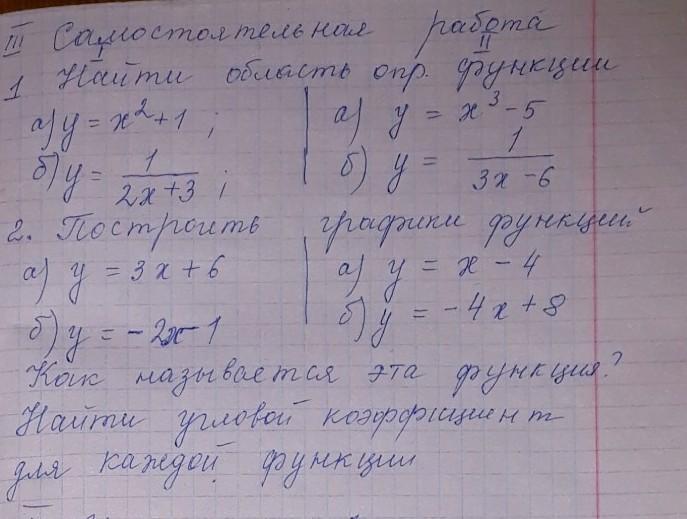 III Самостоятельная работа
I II
1 Найти область опр. функции
а) y = x² + 1 ; а) y = x³ - 5
б) y = 1/(2x + 3) ; б) y = 1/(3x - 6)
2. Построить графики функций
а) y = 3x + 6 а) y = x - 4
б) y = - 2x - 1 б) y = - 4x + 8
Как называется эта функция?
Найти угловой коэффициент
для каждой функции